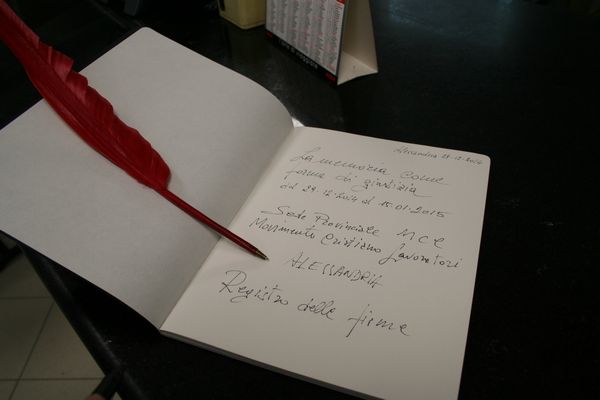 Alessandria 29-12-2014
La memoria come
forma di giustizia
dal 29.12.2014 al 15.01.2015
Sede Provinciale MCL
Movimento Cristiano Lavoratori
ALESSANDRIA
Registro delle firme